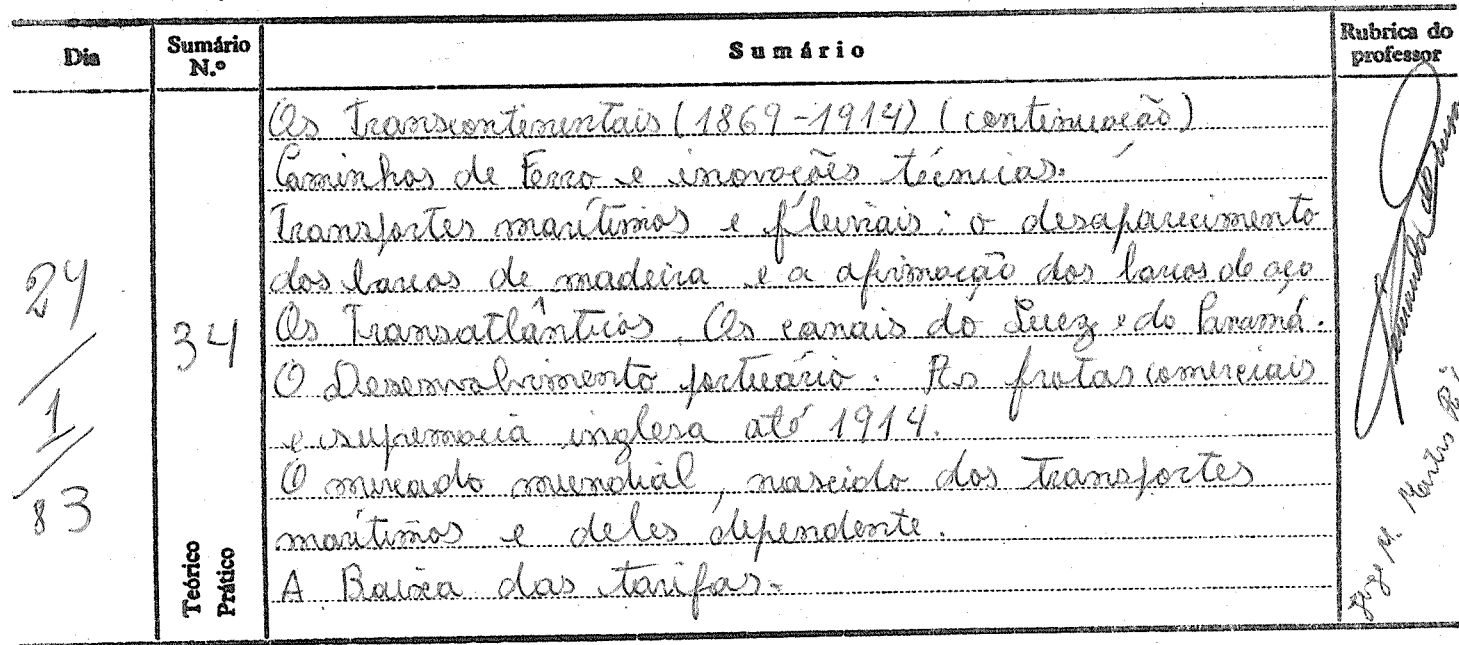 Dia
Sumário N.º
Sumário
Rubrica do professor
Os Transcontinentais (1869-1914) (continuação)
Caminhos de Ferro e inovações técnicas.
Transportes marítimos e fluviais: o desaparecimento
dos barcos de madeira e a afirmação dos barcos de aço
Os Transatlânticos. Os canais do Suez e do Panamá.
O Desenvolvimento portuário. As frotas comerciais
e supremacia inglesa até 1914.
O mercado mundial, nascido dos transportes
marítimos e deles dependente.
A Baixa das tarifas.
24/1/83
34
Teórico
Prático
Jorge M. Martins